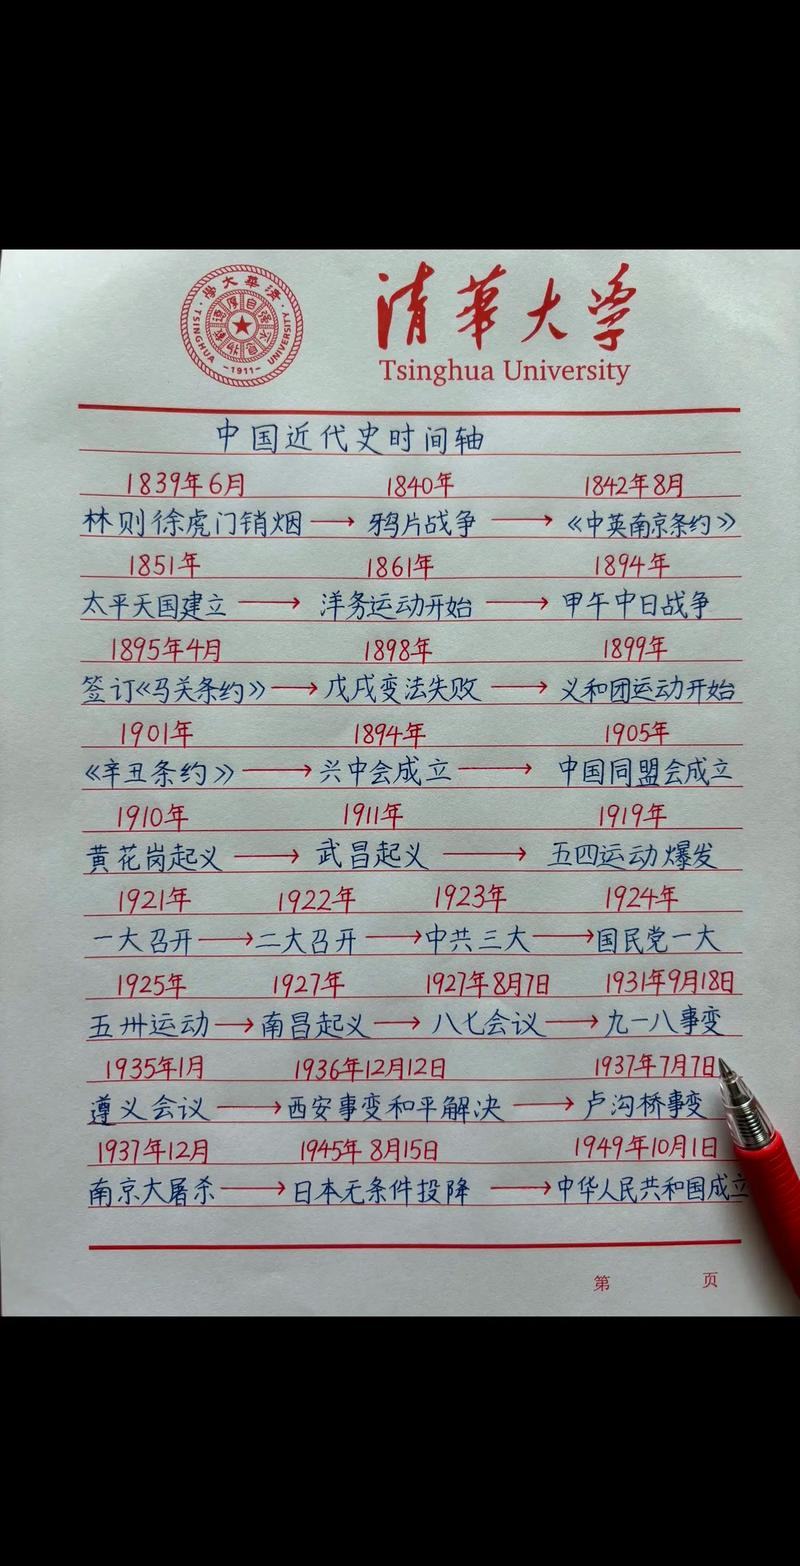 清華大學
TSINGHUA UNIVERSITY
自强不息
厚德載物
-1911-
清華大学
Tsinghua University
中国近代史时间轴
1839年6月 1840年 1842年8月
林则徐虎门销烟→鸦片战争→《中英南京条约》
1851年 1861年 1894年
太平天国建立→洋务运动开始→甲午中日战争
1895年4月 1898年 1899年
签订《马关条约》→戊戌变法失败→义和团运动开始
1901年 1894年 1905年
《辛丑条约》→兴中会成立→中国同盟会成立
1910年 1911年 1919年
黄花岗起义→武昌起义→五四运动爆发
1921年 1922年 1923年 1924年
一大召开→二大召开→中共三大→国民党一大
1925年 1927年 1927年8月7日 1931年9月18日
五卅运动→南昌起义→八七会议→九一八事变
1935年1月 1936年12月12日 1937年7月7日
遵义会议→西安事变和平解决→卢沟桥事变
1937年12月 1945年8月15日 1949年10月1日
南京大屠杀→日本无条件投降→中华人民共和国成立
第 页